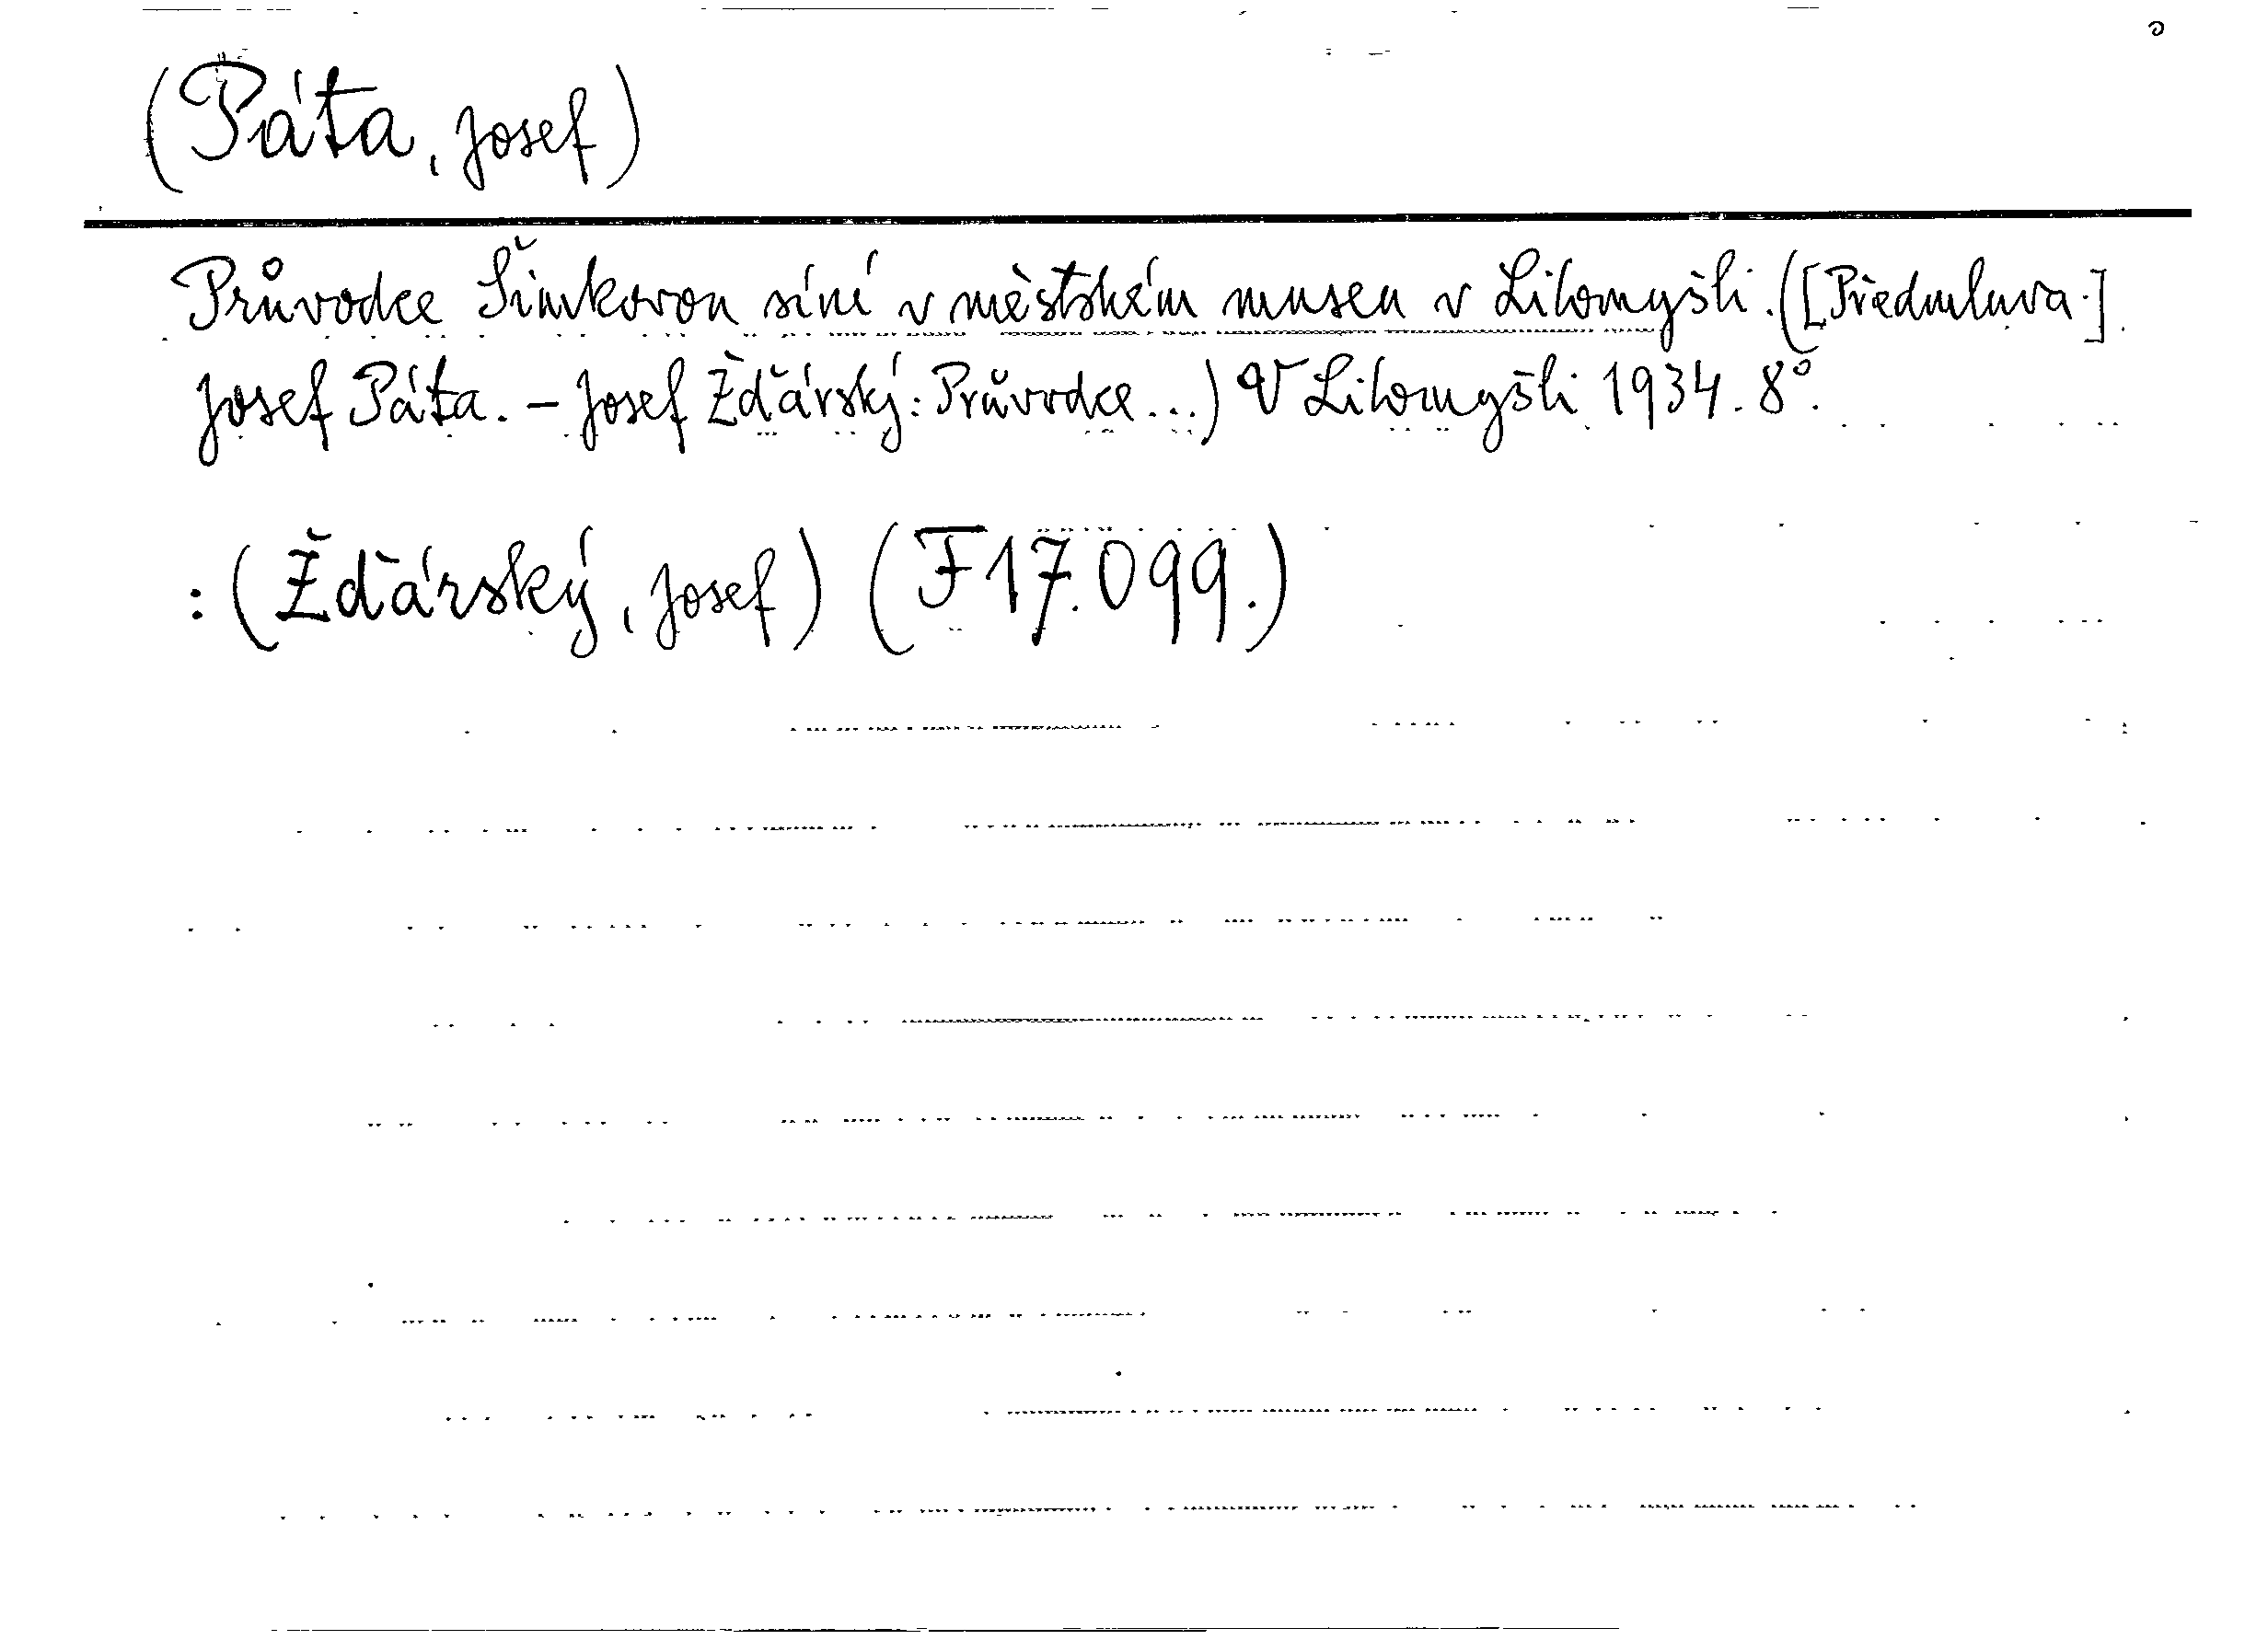 (Páta, Josef)
Průvodce Šimkovou síní v městském museu v Litomyšli. ([Předmluva.]
Josef Páta. – Josef Žďárský: Průvodce...) V Litomyšli 1934. 8°.
: (Žďárský, Josef) (F 17.099.)